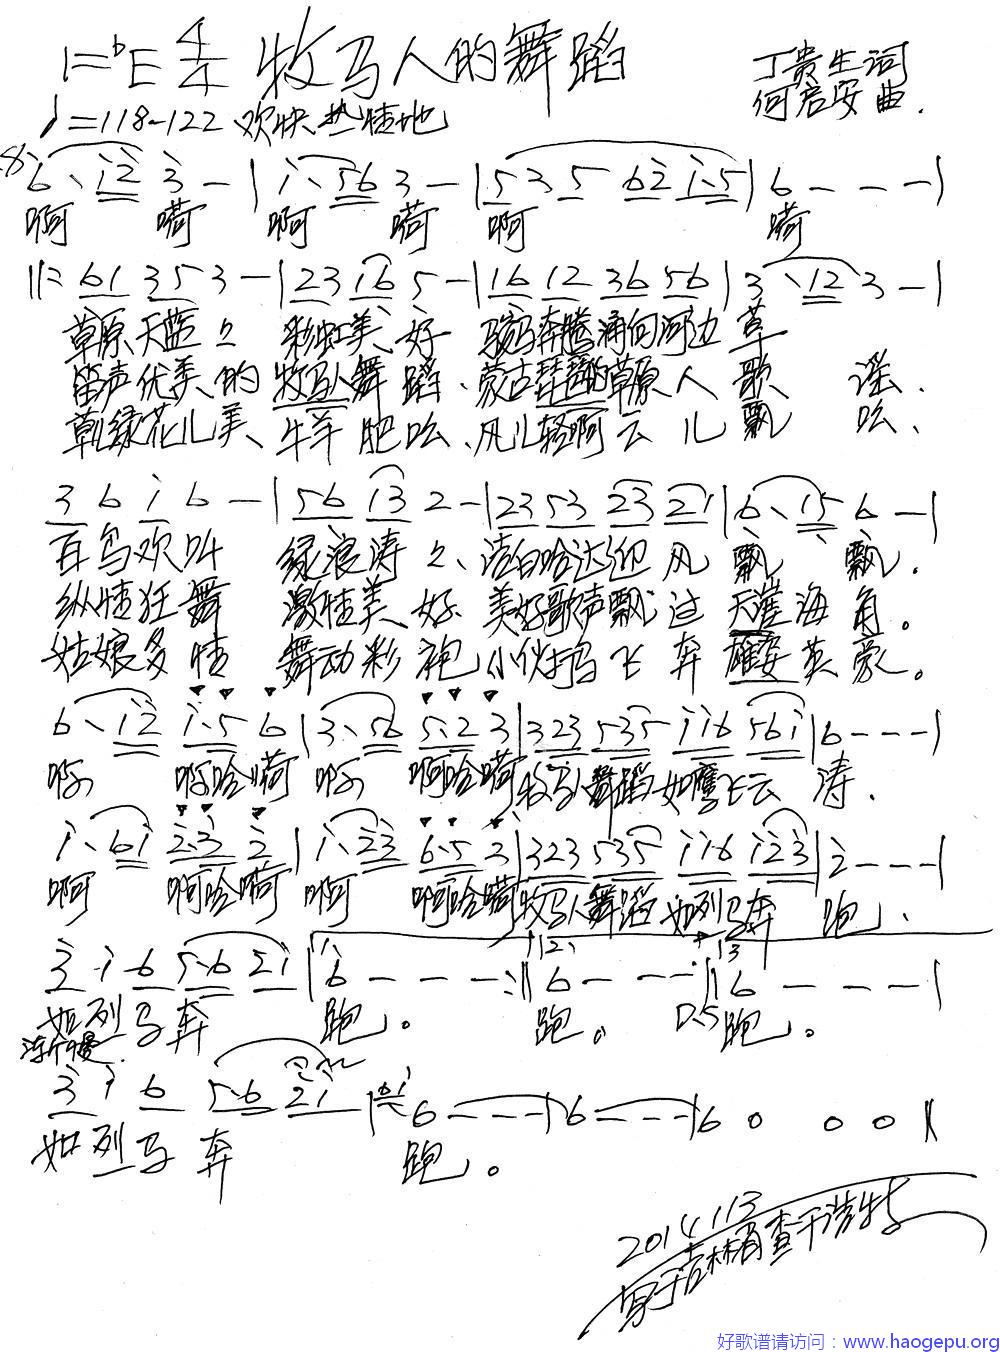 1=♭E 4/4 牧马人的舞蹈
丁贵生词
何启安曲.
♩=118-122 欢快热情地
6· i2 3 - | i· 56 3 - | 53 5 62 i·5 | 6 - - - |
啊 嗬 啊 嗬 啊 嗬
||: 61 35 3 - | 23 16 5 - | 16 12 36 56 | 3· 12 3 - |
草原天蓝々 彩虹美、好 骏马奔腾涌向河边草
笛声优美的牧马人舞蹈、蒙古琵琶的草原人歌谣、
草儿绿花儿美、牛羊肥吆、风儿轻啊云儿飘吆、
3 6 i 6 - | 56 i3 2 - | 23 53 23 21 | 6· 15 6 - |
百鸟欢叫 绿浪涛々、洁白哈达迎风飘、飘.
纵情狂舞 激情美、好、美好歌声飘过天涯海角。
姑娘多情 舞动彩袍、小伙打马飞奔雄姿英豪。
6· i2 i·5 6 | 3· 56 5·2 3 | 323 535 ii6 56i | 6 - - - |
啊, 啊哈嗬 啊, 啊哈嗬 牧马人舞蹈如鹰飞云涛.
i· 6i 2·3 2 | i· 23 6·5 3 | 323 535 ii6 i23 | 2 - - - |
啊 啊哈嗬 啊 啊哈嗬 牧马人舞蹈如列马奔跑.
3 i 6 5·6 2i | 6 - - - :|| 6 - - - :|| 6 - - - |
如列马奔 跑。 跑。 D.S 跑。
渐慢
3 i 6 5·6 2i | 6 - - - | 6 - - - | 6 0 0 0 ||
如列马奔 跑。
2014.113
写于吉林省查干浩特
好歌谱请访问：www.haogepu.org